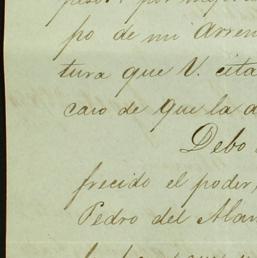 po de mi Arren
tura que V. cita
caso de que la a
Debo
frecido el poder,
Pedro del Alam